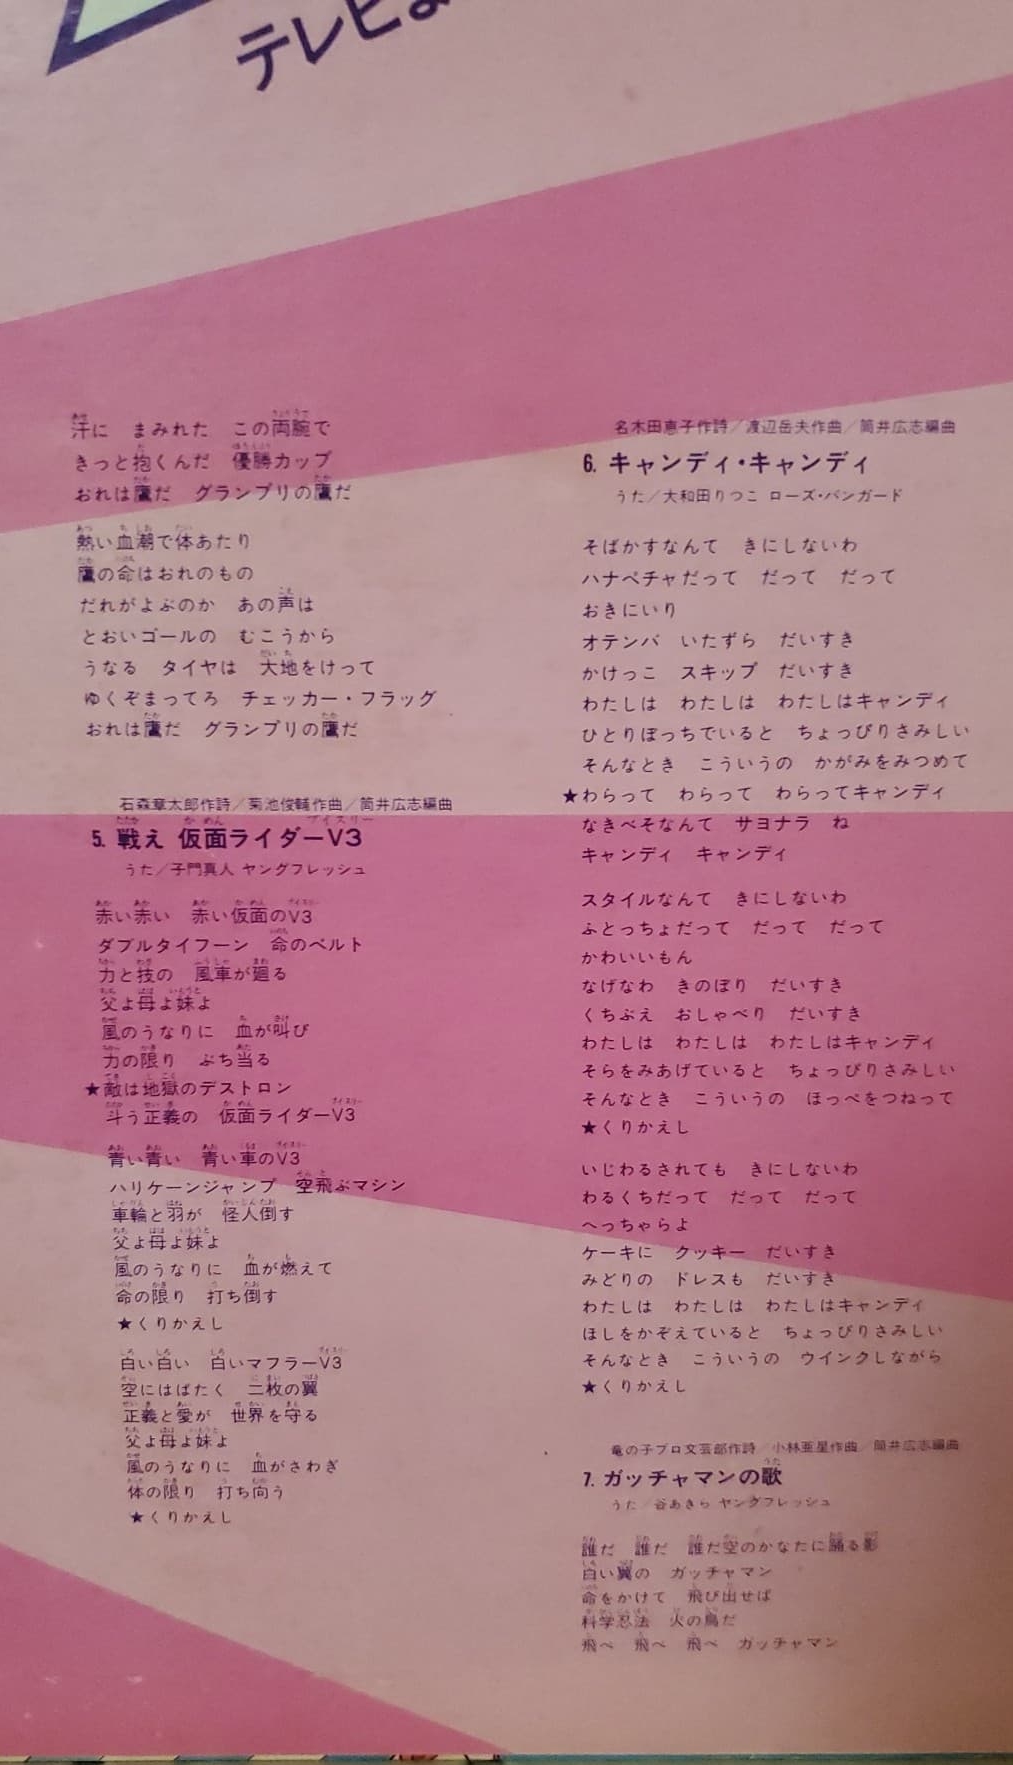 テレビま
汗に　まみれた　この両腕で
きっと抱くんだ　優勝カップ
おれは鷹だ　グランプリの鷹だ
熱い血潮で体あたり
鷹の命はおれのもの
だれがよぶのか　あの声は
とおいゴールの　むこうから
うなる　タイヤは　大地をけって
ゆくぞまってろ　チェッカー・フラッグ
おれは鷹だ　グランプリの鷹だ
石森章太郎作詩／菊池俊輔作曲／筒井広志編曲
5. 戦え 仮面ライダーV3
うた／子門真人 ヤングフレッシュ
赤い赤い　赤い仮面のV3
ダブルタイフーン　命のベルト
力と技の　風車が廻る
父よ母よ妹よ
風のうなりに　血が叫び
力の限り　ぶち当る
★敵は地獄のデストロン
斗う正義の　仮面ライダーV3
青い青い　青い車のV3
ハリケーンジャンプ　空飛ぶマシン
車輪と羽が　怪人倒す
父よ母よ妹よ
風のうなりに　血が燃えて
命の限り　打ち倒す
★くりかえし
白い白い　白いマフラーV3
空にはばたく　二枚の翼
正義と愛が　世界を守る
父よ母よ妹よ
風のうなりに　血がさわぎ
体の限り　打ち向う
★くりかえし
名木田恵子作詩／渡辺岳夫作曲／筒井広志編曲
6. キャンディ・キャンディ
うた／大和田りつこ ローズ・バンガード
そばかすなんて　きにしないわ
ハナペチャだって　だって　だって
おきにいり
オテンバ　いたずら　だいすき
かけっこ　スキップ　だいすき
わたしは　わたしは　わたしはキャンディ
ひとりぼっちでいると　ちょっぴりさみしい
そんなとき　こういうの　かがみをみつめて
★わらって　わらって　わらってキャンディ
なきべそなんて　サヨナラ　ね
キャンディ　キャンディ
スタイルなんて　きにしないわ
ふとっちょだって　だって　だって
かわいいもん
なげなわ　きのぼり　だいすき
くちぶえ　おしゃべり　だいすき
わたしは　わたしは　わたしはキャンディ
そらをみあげていると　ちょっぴりさみしい
そんなとき　こういうの　ほっぺをつねって
★くりかえし
いじわるされても　きにしないわ
わるくちだって　だって　だって
へっちゃらよ
ケーキに　クッキー　だいすき
みどりの　ドレスも　だいすき
わたしは　わたしは　わたしはキャンディ
ほしをかぞえていると　ちょっぴりさみしい
そんなとき　こういうの　ウインクしながら
★くりかえし
竜の子プロ文芸部作詩／小林亜星作曲／筒井広志編曲
7. ガッチャマンの歌
うた／谷あきら ヤングフレッシュ
誰だ　誰だ　誰だ空のかなたに踊る影
白い翼の　ガッチャマン
命をかけて　飛び出せば
科学忍法　火の鳥だ
飛べ　飛べ　飛べ　ガッチャマン